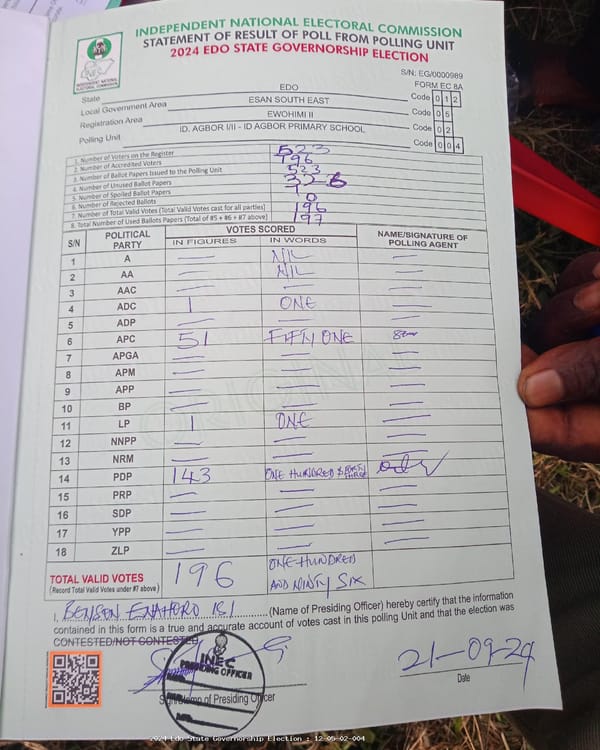 INDEPENDENT NATIONAL ELECTORAL COMMISSION
STATEMENT OF RESULT OF POLL FROM POLLING UNIT
2024 EDO STATE GOVERNORSHIP ELECTION
INEC
INDEPENDENT NATIONAL ELECTORAL COMMISSION
S/N: EG/0000989
FORM EC 8A
State EDO Code 0 1 2
Local Government Area ESAN SOUTH EAST Code 0 5
Registration Area EWOHIMI II Code 0 2
Polling Unit ID. AGBOR I/II - ID AGBOR PRIMARY SCHOOL Code 0 0 4
1. Number of Voters on the Register 523
2. Number of Accredited Voters 196
3. Number of Ballot Papers Issued to the Polling Unit 523
4. Number of Unused Ballot Papers 326
5. Number of Spoiled Ballot Papers 1
6. Number of Rejected Ballots 0
7. Number of Total Valid Votes (Total Valid Votes cast for all parties) 196
8. Total Number of Used Ballots Papers (Total of #5 + #6 + #7 above) 197
S/N POLITICAL PARTY VOTES SCORED NAME/SIGNATURE OF POLLING AGENT
IN FIGURES IN WORDS
1 A — NIL —
2 AA — NIL —
3 AAC — — —
4 ADC 1 ONE —
5 ADP — — —
6 APC 51 FIFTY ONE
7 APGA — — —
8 APM — — —
9 APP — — —
10 BP — — —
11 LP 1 ONE —
12 NNPP — — —
13 NRM — — —
14 PDP 143 ONE HUNDRED & FORTY THREE
15 PRP — — —
16 SDP — — —
17 YPP — — —
18 ZLP — — —
TOTAL VALID VOTES 196 ONE HUNDRED
(Record Total Valid Votes under #7 above) AND NINTY SIX
I, BENSON ENAHORO ISI (Name of Presiding Officer) hereby certify that the information
contained in this form is a true and accurate account of votes cast in this polling Unit and that the election was
CONTESTED/NOT CONTESTED
INEC
PRESIDING OFFICER
of Presiding Officer
21-09-24
Date
2024 Edo State Governorship Election : 12-05-02-004